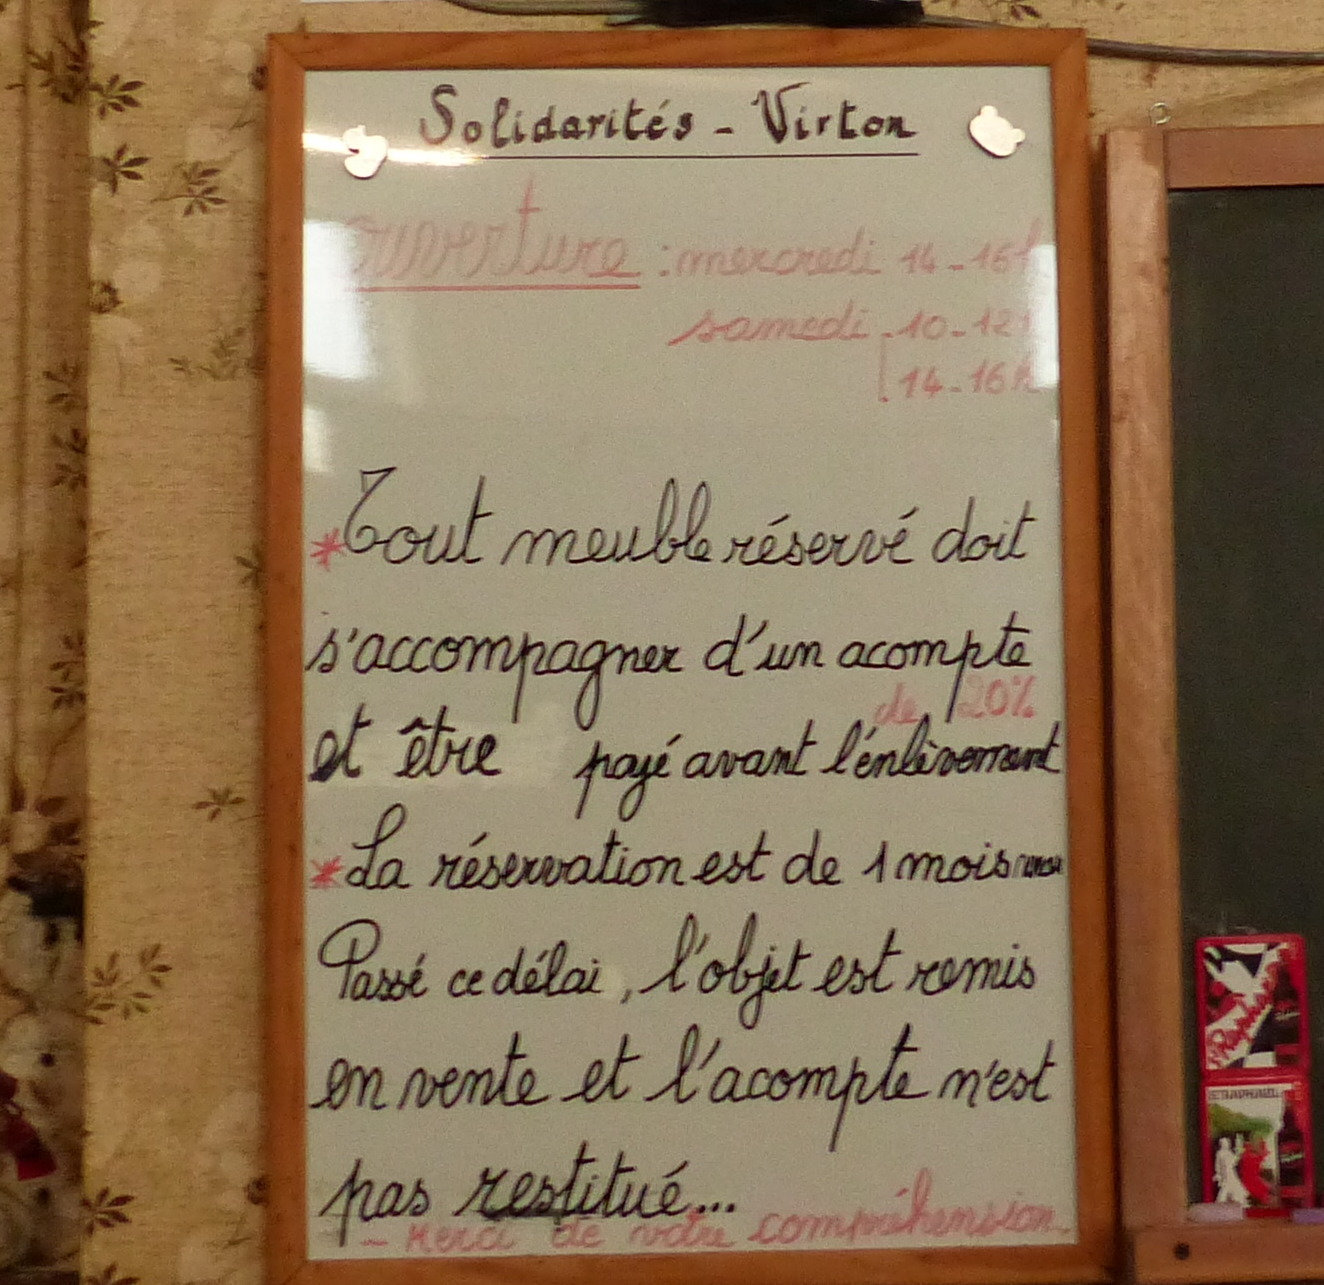 Solidarités - Virton
ouverture : mercredi 14 - 16h
samedi 10 - 12h
14 - 16h
* Tout meuble réservé doit
s'accompagner d'un acompte
de 20%
et être payé avant l'énlèvement
* La réservation est de 1 mois
Passé ce délai, l'objet est remis
en vente et l'acompte n'est
pas restitué...
- Merci de votre compréhension
St Raphaël
ST RAPHAEL